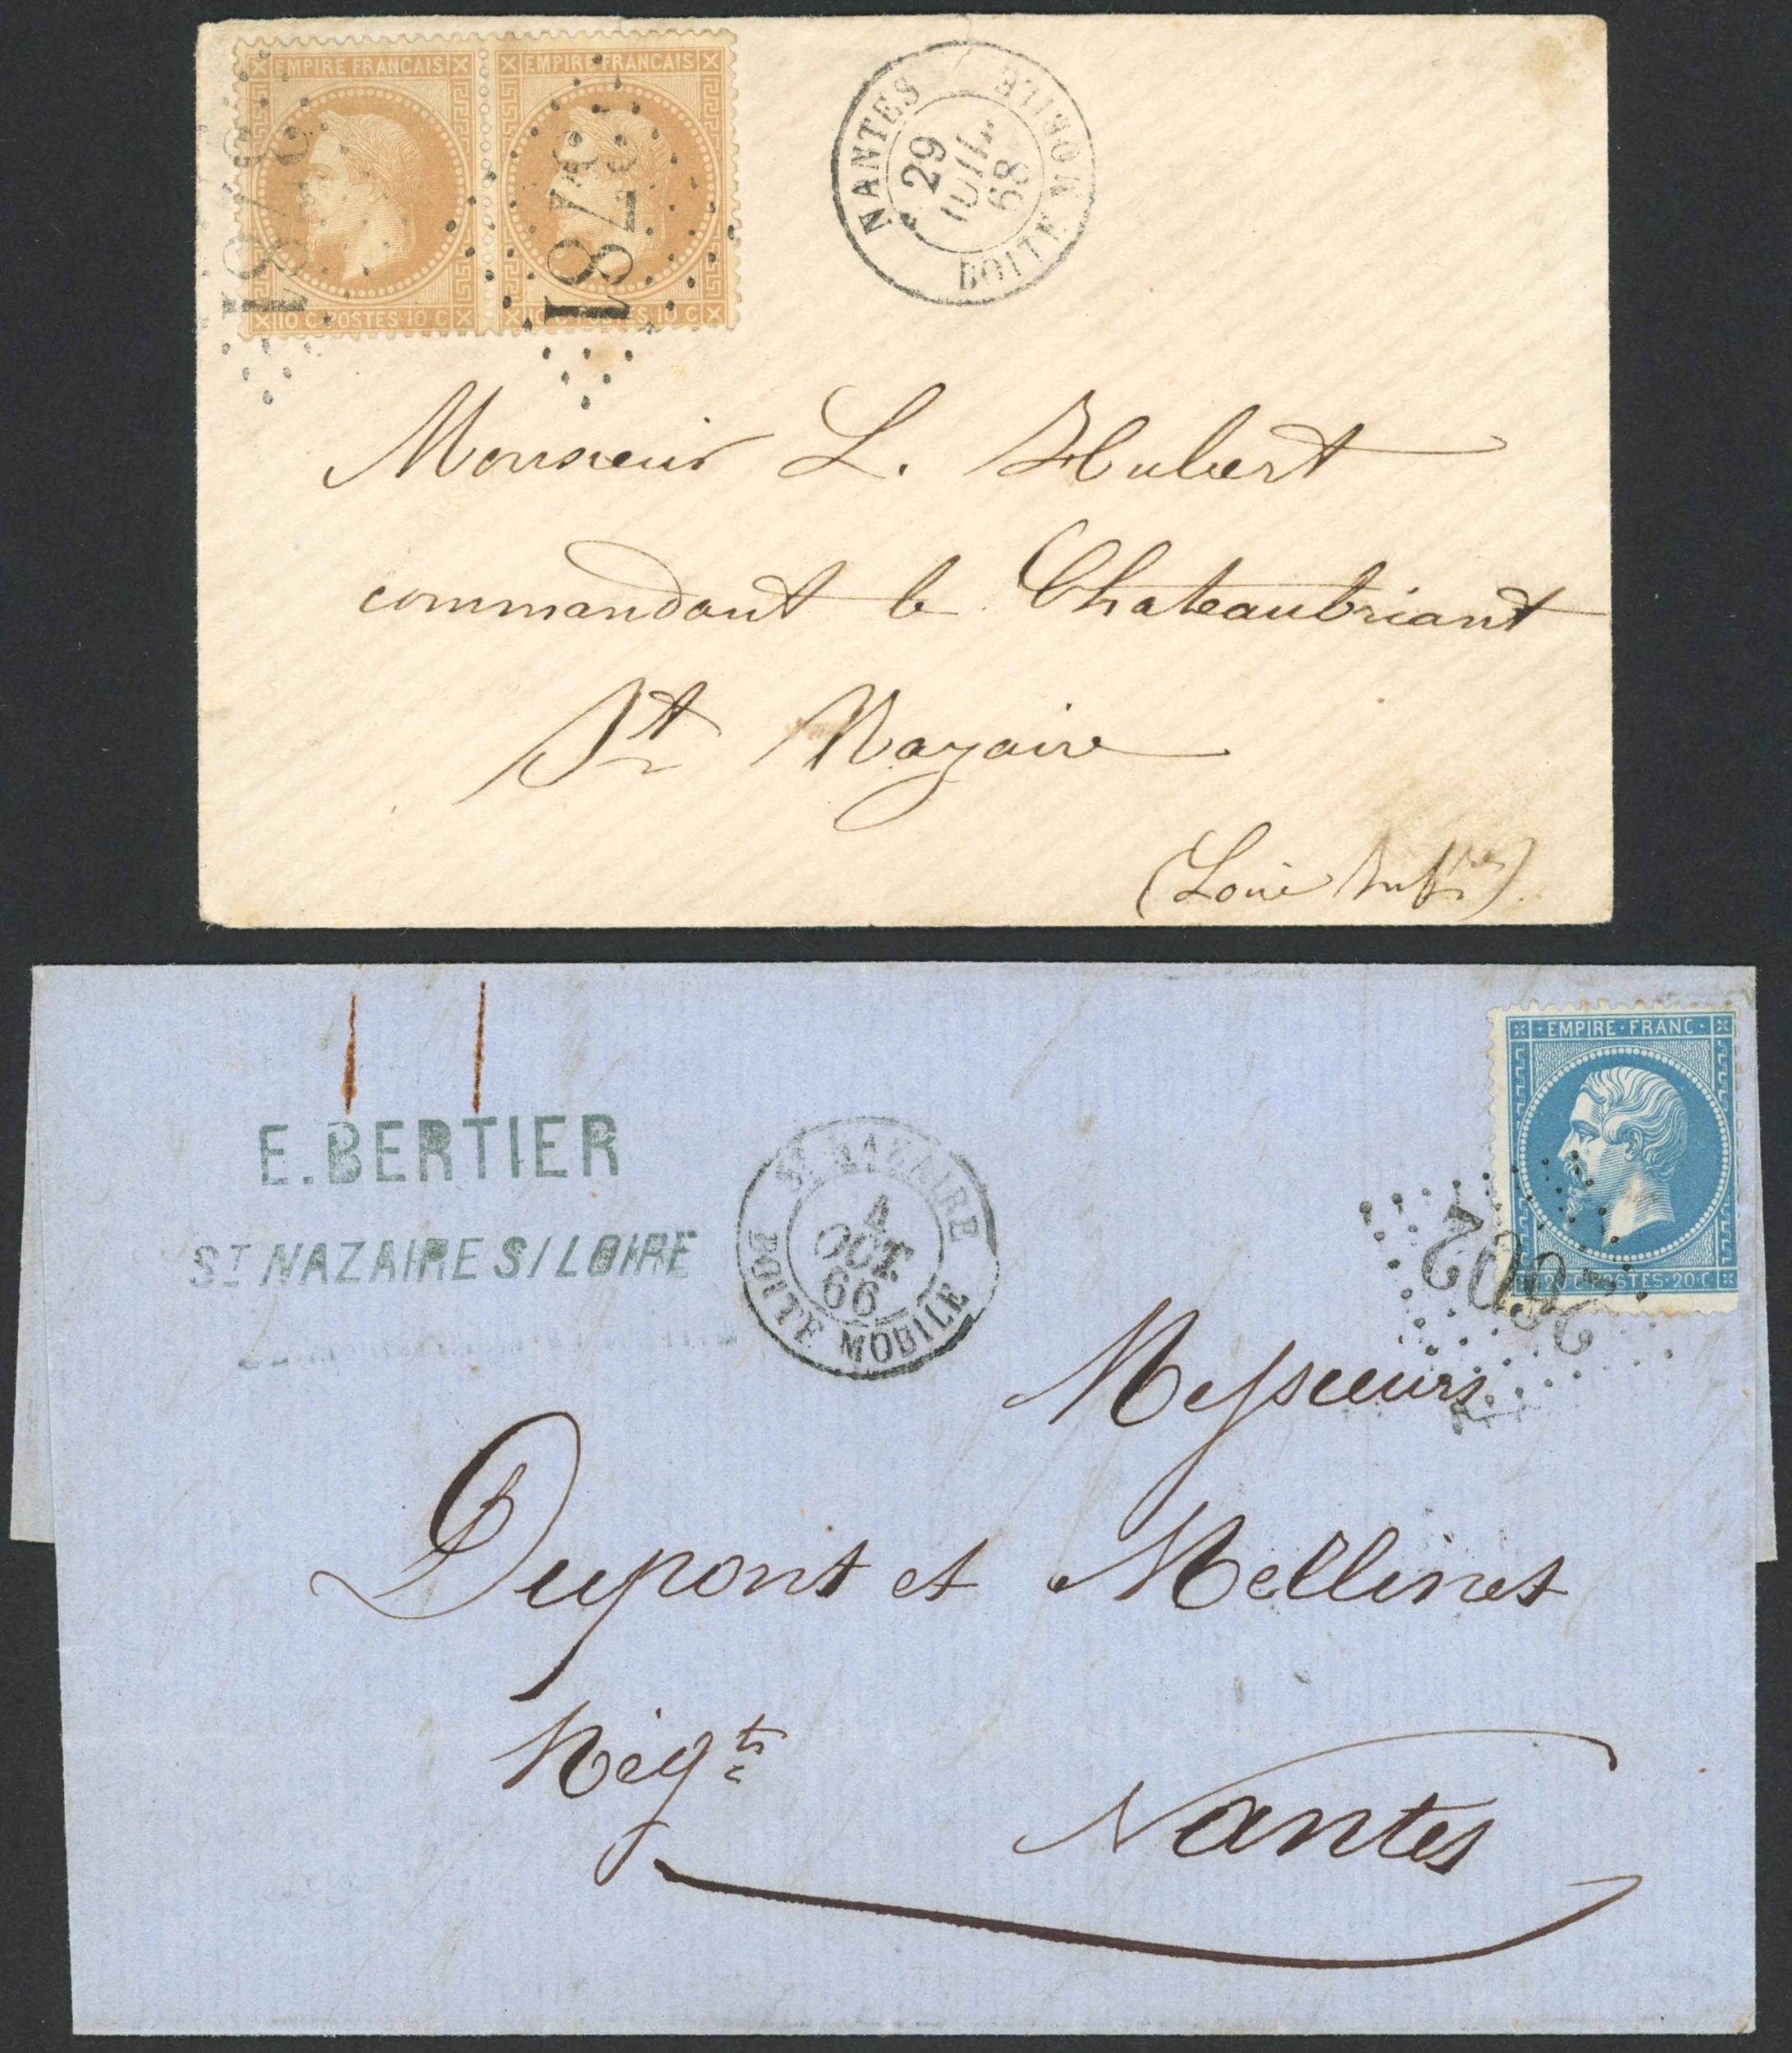 EMPIRE FRANCAIS
10 C POSTES 10 C
EMPIRE FRANCAIS
10 C POSTES 10 C
NANTES
29
JUIL
68
BOITE MOBILE
Monsieur L. Hubert
commandant le Chateaubriant
St Nazaire
(Loire Infre)
E. BERTIER
ST NAZAIRE S/LOIRE
ST NAZAIRE
4
OCT.
66
BOITE MOBILE
EMPIRE · FRANC ·
20 C · POSTES · 20 C
2602
Messieurs
Dupont et Mellinet
Négts
Nantes